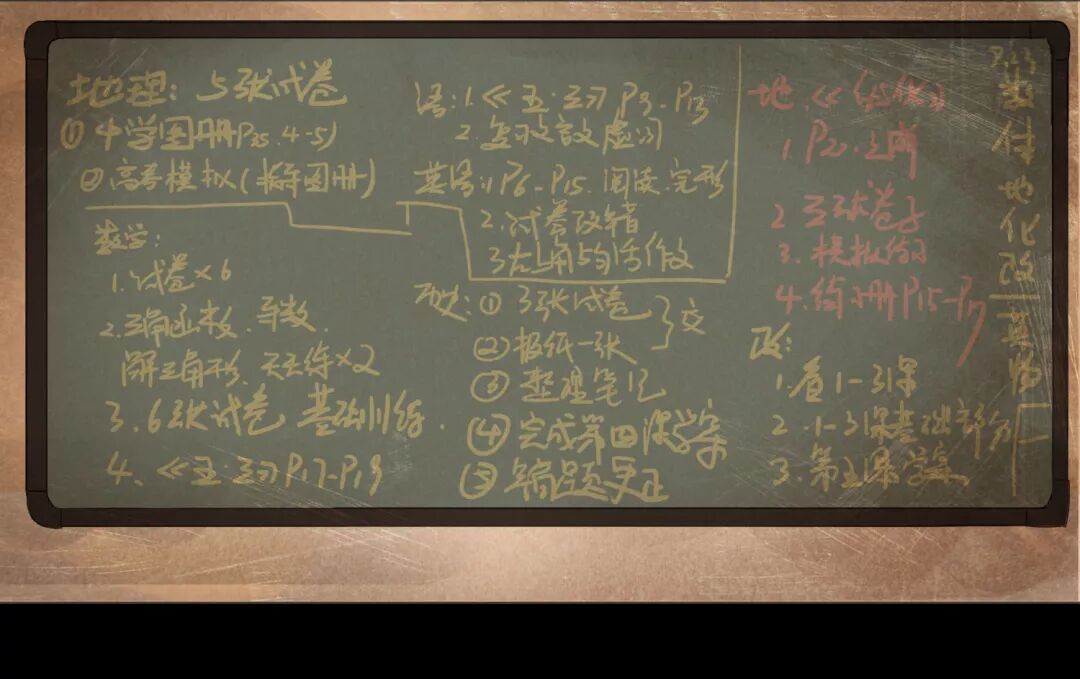 地理: 5张试卷
① 中学图册P35.4-5)
② 高考模拟(图册)
数学:
1.试卷×6
2.三角函数、导数、
解三角形、天天练×2
3.6张试卷 基础训练.
4.《五·三》P17-P19
语:1.《五·三》P9-P13
2.复习文言虚词
英语:1)P6-P15.阅读.完形
2.试卷改错
3.右上角与作文
历史:①3张试卷
②报纸一张
}交
③整理笔记
④完成第四课学案
⑤错题更正
地.《
1.P20.
2 三张卷子
3.模拟
4.练习册P15-P17
政:
1.看1-3课
2.1-3课基础部分
3.第五课学案
数体地化改英